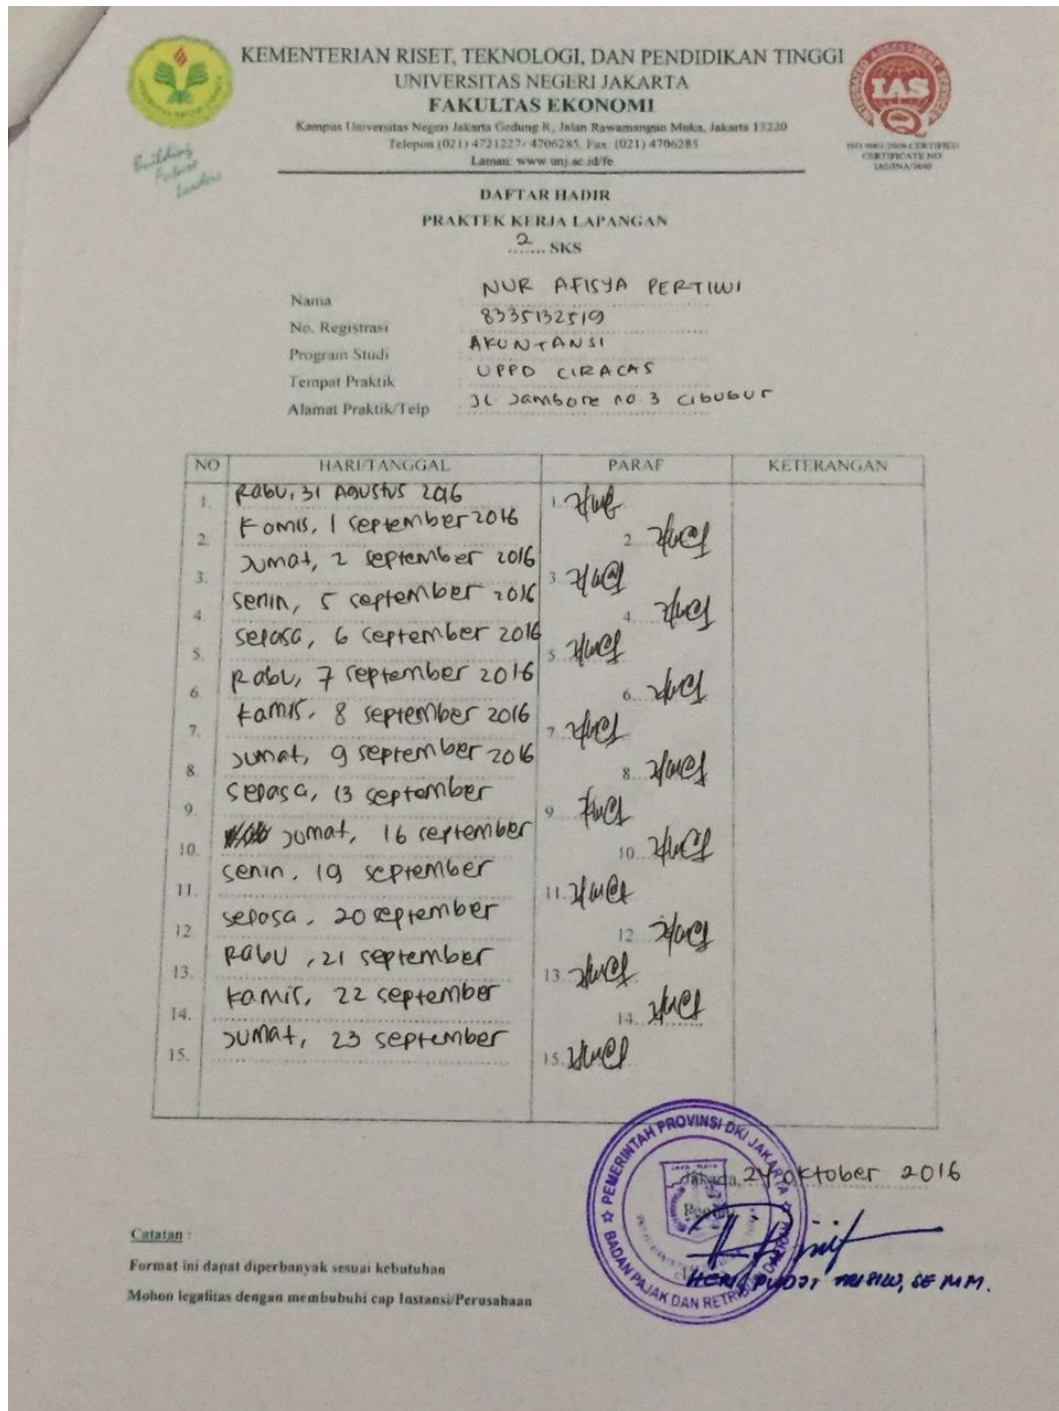 KEMENTERIAN RISET, TEKNOLOGI, DAN PENDIDIKAN TINGGI
UNIVERSITAS NEGERI JAKARTA
FAKULTAS EKONOMI
Kampus Universitas Negeri Jakarta Gedung R, Jalan Rawamangun Muka, Jakarta 13220
Telepon (021) 4721227/ 4706285, Fax: (021) 4706285
Laman: www.unj.ac.id/fe
Building
Future
Leaders
INTEGRATED ASSESSMENT SERVICES
IAS
ISO 9001:2008 CERTIFIED
CERTIFICATE NO
DAFTAR HADIR
PRAKTEK KERJA LAPANGAN
2 SKS
Nama NUR AFISYA PERTIWI
No. Registrasi 8335132519
Program Studi AKUNTANSI
Tempat Praktik UPPD CIRACAS
Alamat Praktik/Telp JL. Jambore no 3 Cibubur
NO HARI/TANGGAL PARAF KETERANGAN
1. Rabu, 31 Agustus 2016 1.
2. Kamis, 1 September 2016 2
3. Jumat, 2 September 2016 3
4. Senin, 5 September 2016 4
5. Selasa, 6 September 2016 5
6. Rabu, 7 September 2016 6
7. Kamis, 8 September 2016 7
8. Jumat, 9 September 2016 8
9. Selasa, 13 September 9
10. Jumat, 16 September 10
11. Senin, 19 September 11.
12. Selasa, 20 September 12
13. Rabu, 21 September 13
14. Kamis, 22 September 14.
15. Jumat, 23 September 15.
Jakarta, 24 Oktober 2016
PEMERINTAH PROVINSI DKI JAKARTA
JAYA RAYA
BADAN PAJAK DAN RETRIBUSI DAERAH
Catatan :
Format ini dapat diperbanyak sesuai kebutuhan
Mohon legalitas dengan membubuhi cap Instansi/Perusahaan
SE MM.